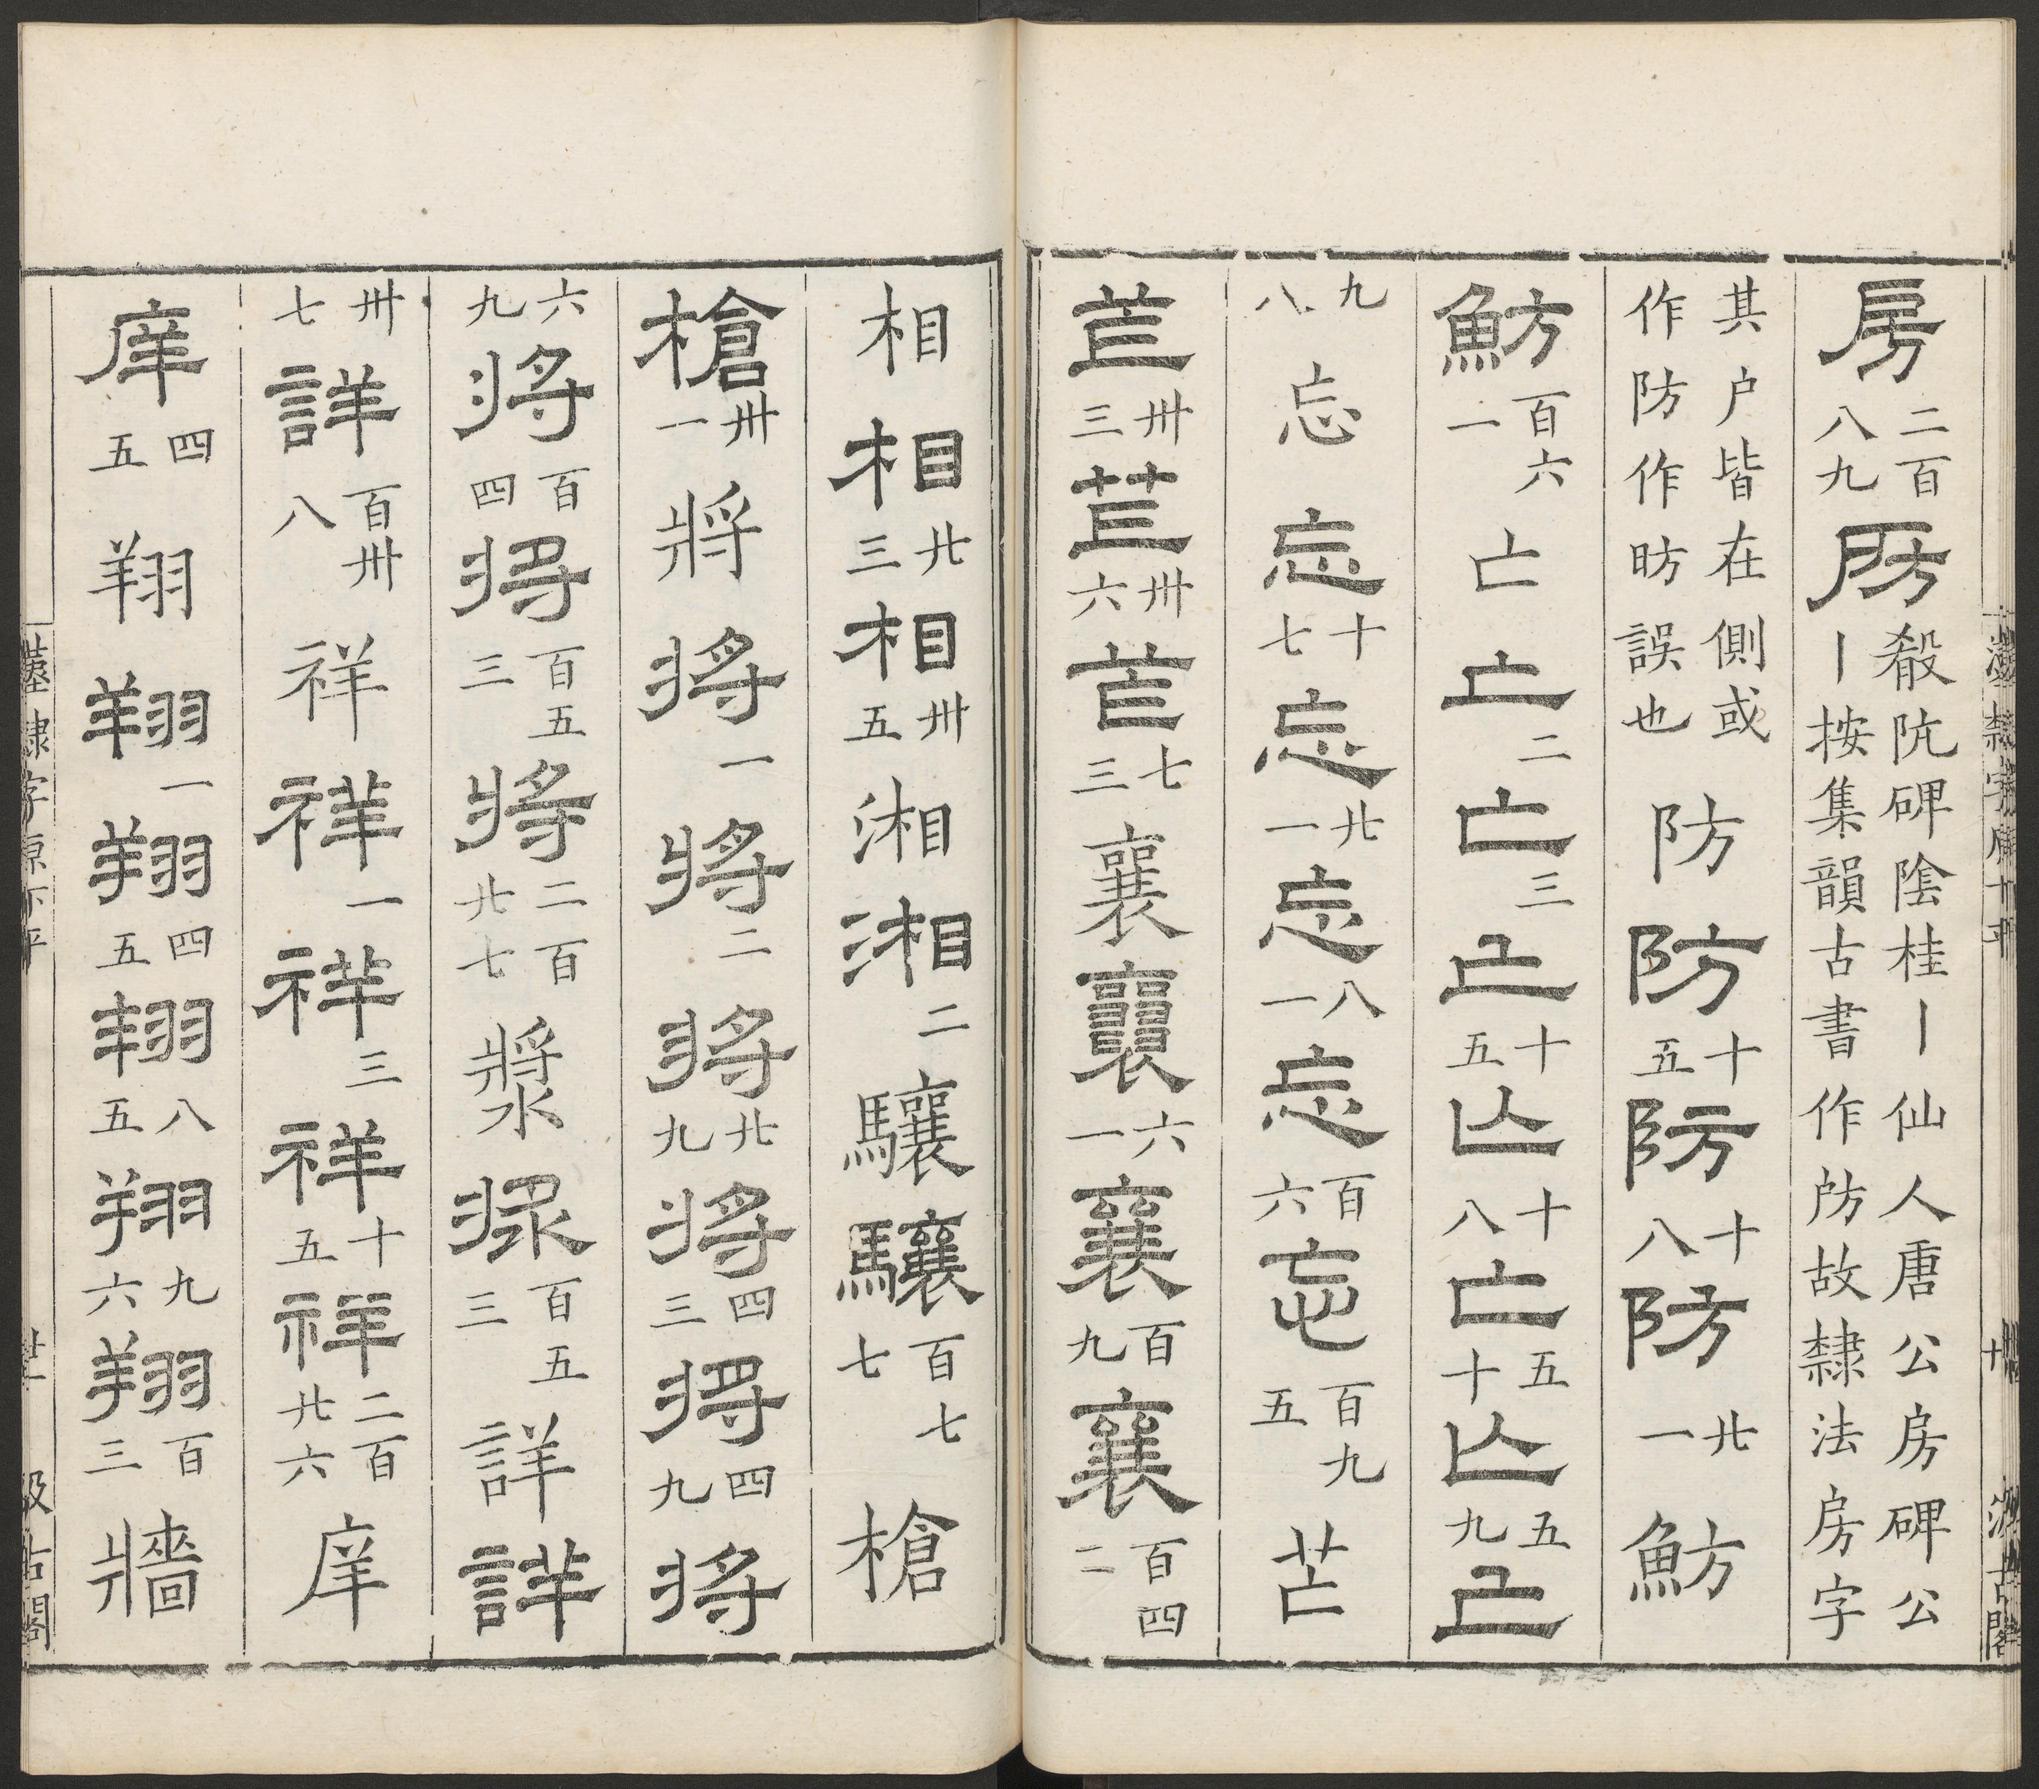 房二百八九𭅃殽阬碑陰桂丨仙人唐公房碑公丨按集韻古書作防故隸法房字
其户皆在側或作防作昉誤也防防十五防十八防廿一魴
魴百六一亡亡二亡三亡十五亡十八亡五十亡五九亡
九八忘忘十七忘廿一忘八一忘百六忘百九五芒
芒卅三芒卅六芒七三襄襄六一襄百九襄百四二
相相廿三相卅五湘湘二驤驤百七七槍
槍卅一將將一將二將廿九將四三將四九將
六九將百四將百五三將二百廿七漿漿百五三詳詳
卅七詳百卅八祥祥一祥三祥十五祥二百廿六庠
庠四五翔翔一翔四五翔八五翔九六翔百三牆
隸字原下平
汲古閣